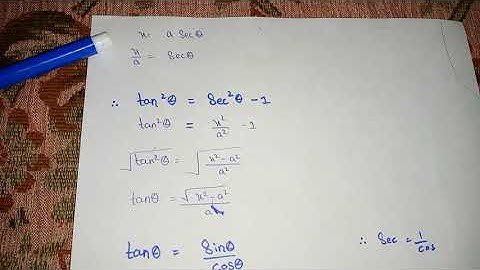 x = a Secθ
x/a = Secθ
∴ tan²θ = Sec²θ - 1
tan²θ = x²/a² - 1
√tan²θ = √((x² - a²)/a²)
tanθ = √(x² - a²)/a
tanθ = Sinθ/cosθ
∴ Sec = 1/cos